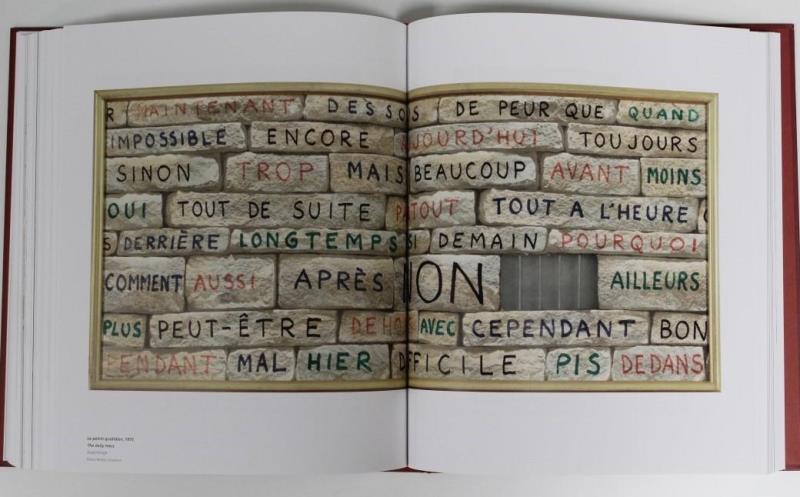 R MAINTENANT DESSOUS DE PEUR QUE QUAND
IMPOSSIBLE ENCORE AUJOURD'HUI TOUJOURS
SINON TROP MAIS BEAUCOUP AVANT MOINS
OUI TOUT DE SUITE PARTOUT TOUT A L'HEURE
S DERRIÈRE LONGTEMPS SI DEMAIN POURQUOI
COMMENT AUSSI APRÈS NON AILLEURS
PLUS PEUT-ÊTRE DEHORS AVEC CEPENDANT BON
PENDANT MAL HIER DIFFICILE PIS DEDANS
The daily news